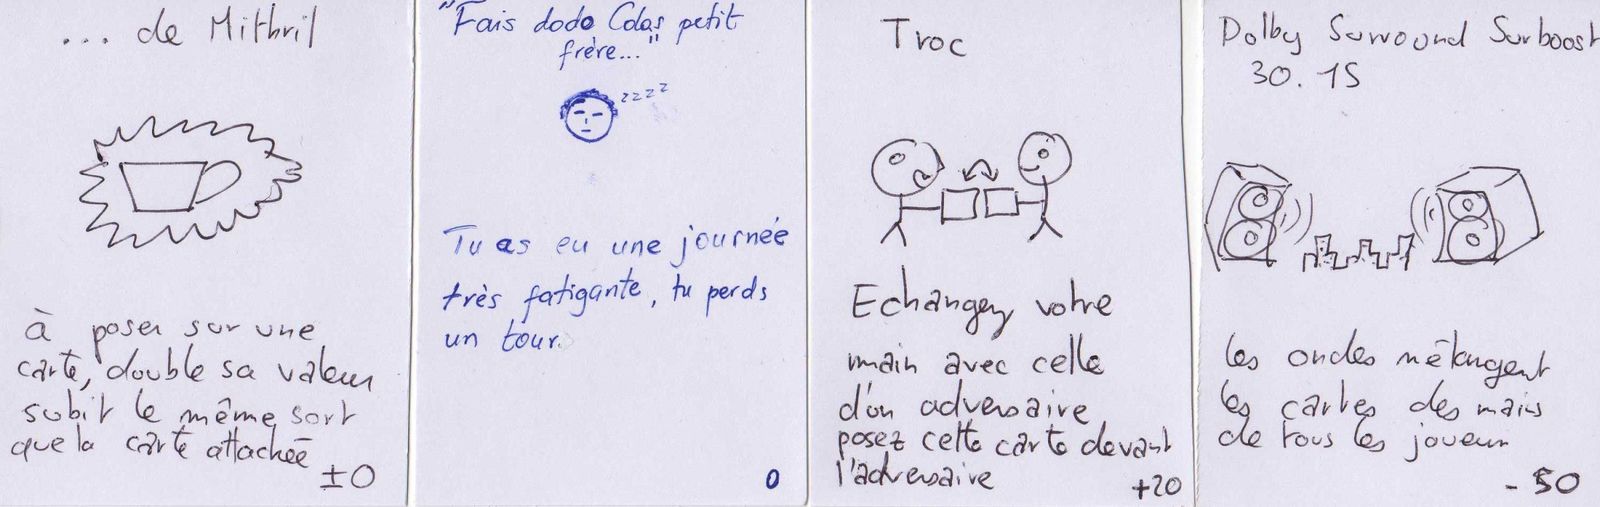 ... de Mithril
à poser sur une
carte, double sa valeur
subit le même sort
que la carte attachée
±0
"Fais dodo Colas petit
frère..."
zzzz
Tu as eu une journée
très fatigante, tu perds
un tour.
0
Troc
Echangez votre
main avec celle
d'un adversaire
posez cette carte devant
l'adversaire
+20
Dolby Surround Surboost
30.15
les ondes mélangent
les cartes des mains
de tous les joueurs
-50